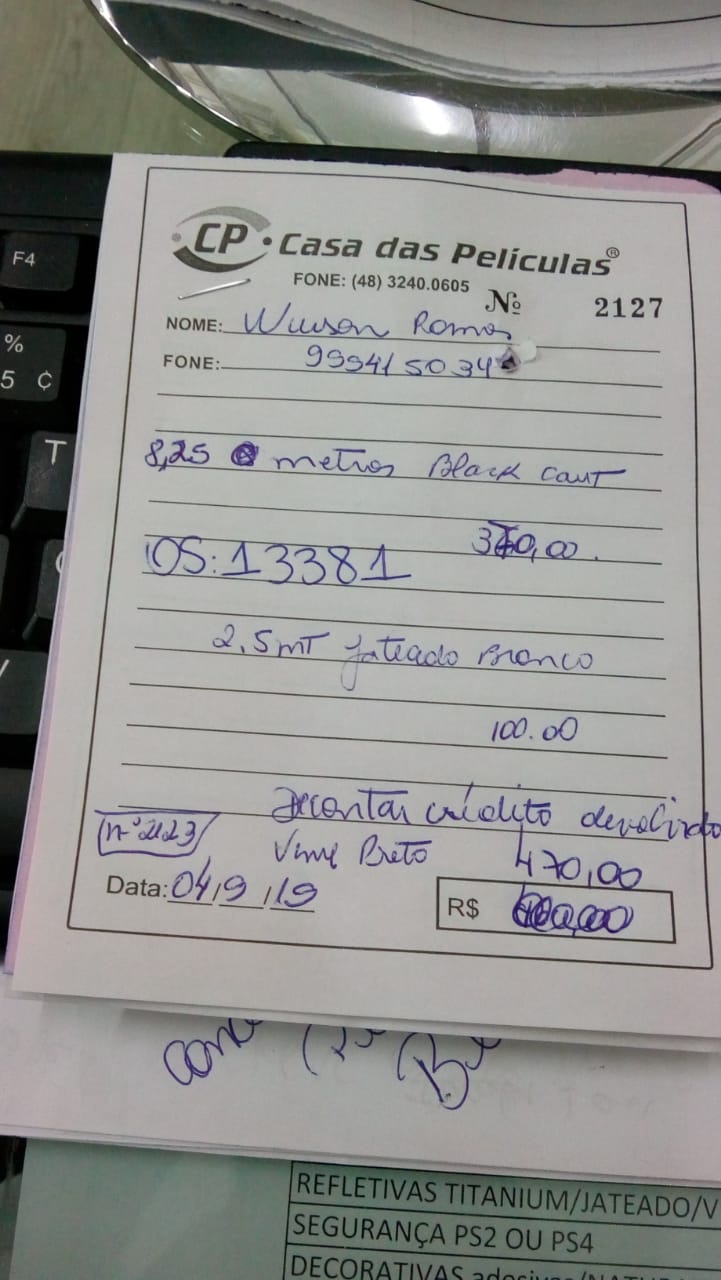 F4
%
5 ¢
T
/
CP • Casa das Películas®
FONE: (48) 3240.0605
Nº 2127
NOME: Wilson Ramos
FONE: 99941 5034
8,25 metros Black
OS: 13381
370,00.
2,5mT Jateado Branco
100.00
Descontar crédito devolvido
nº 2123
Preto 470,00
Data: 04/9/19
R$
REFLETIVAS TITANIUM/JATEADO/V
SEGURANÇA PS2 OU PS4
DECORATIVAS